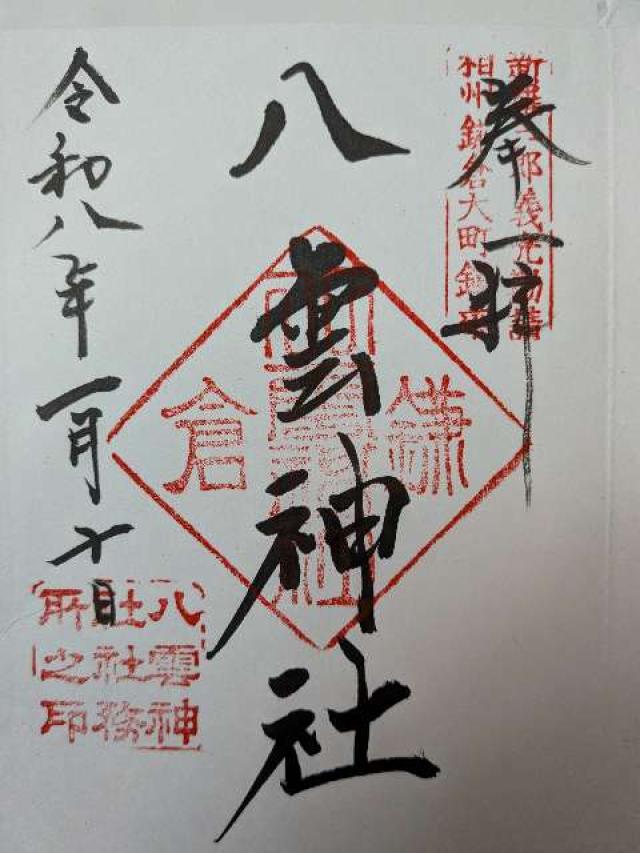 奉拝
新羅三郎義光勧請
相州鎌倉大町鎮座
八雲神社
鎌倉
令和八年一月十日
八雲神
社社務
所之印